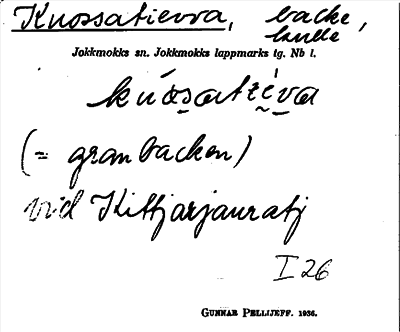 Knossatievva, backe,
kulle
Jokkmokks sn. Jokkmokks lappmarks tg. Nb l.
kúossatziéva
(= granbacken)
vid Kittjarjauratj
I 26
GUNNAR PELLIJEFF. 1936.